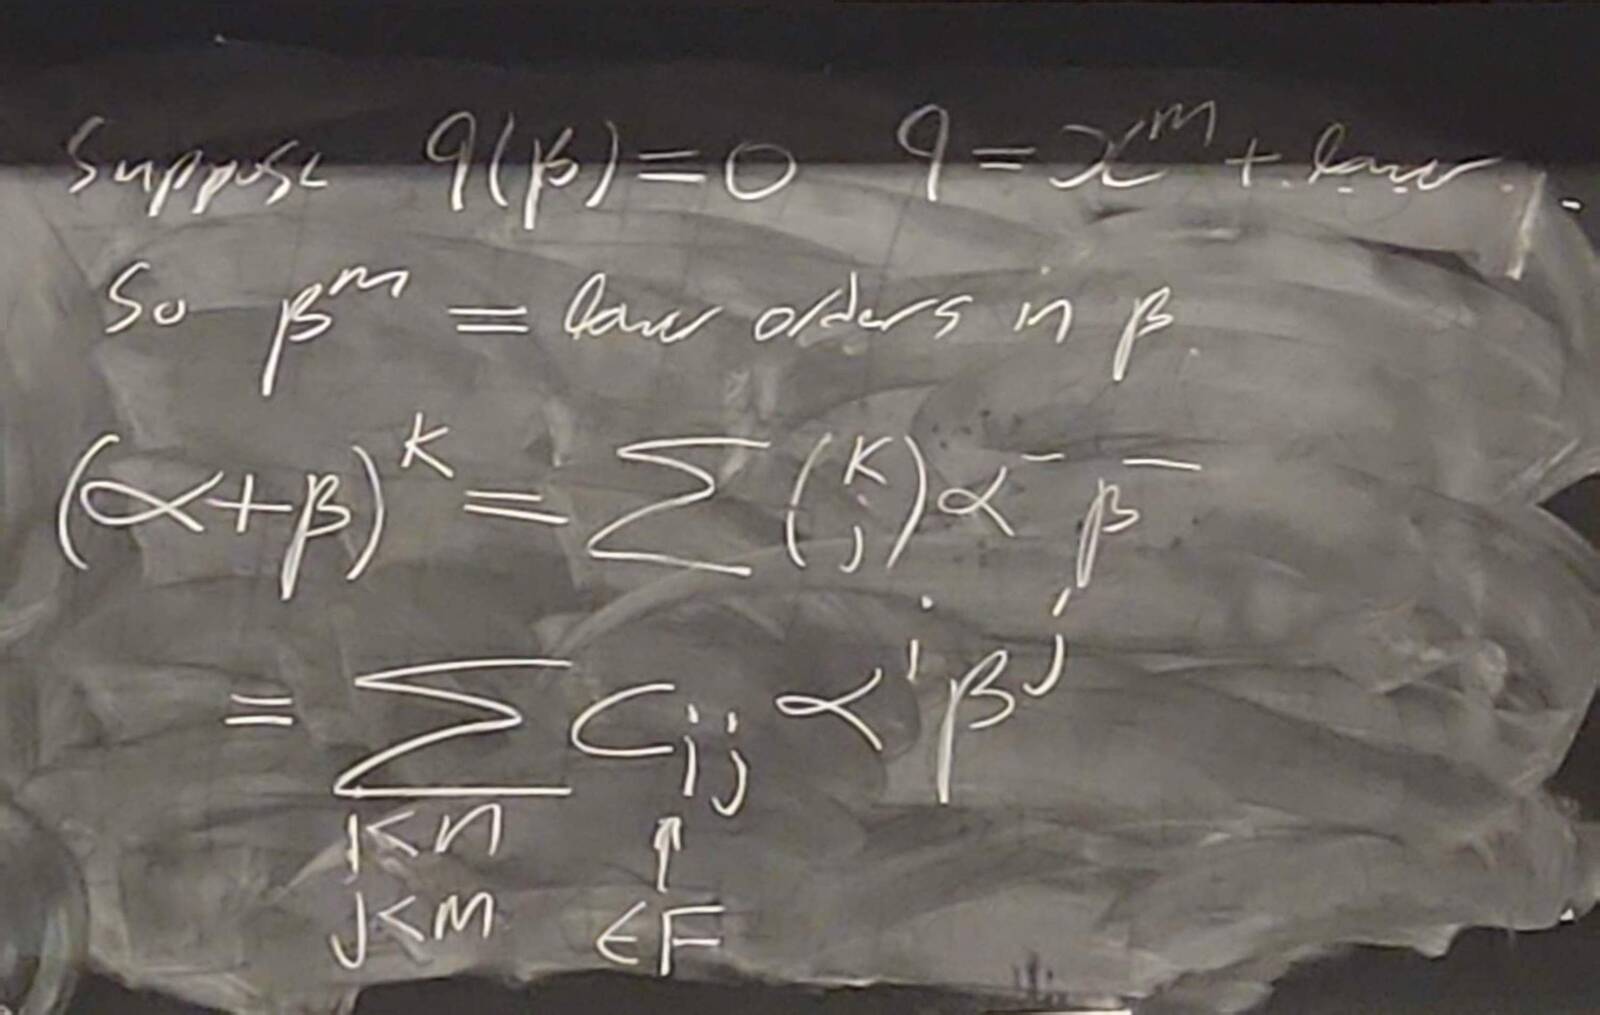 Suppose q(β)=0 q=x^m + lower.
So β^m = lower orders in β.
(α+β)^k = Σ (k j) α^- β^-
= Σ C_ij α^i β^j
i<n ↑
j<m ∈F